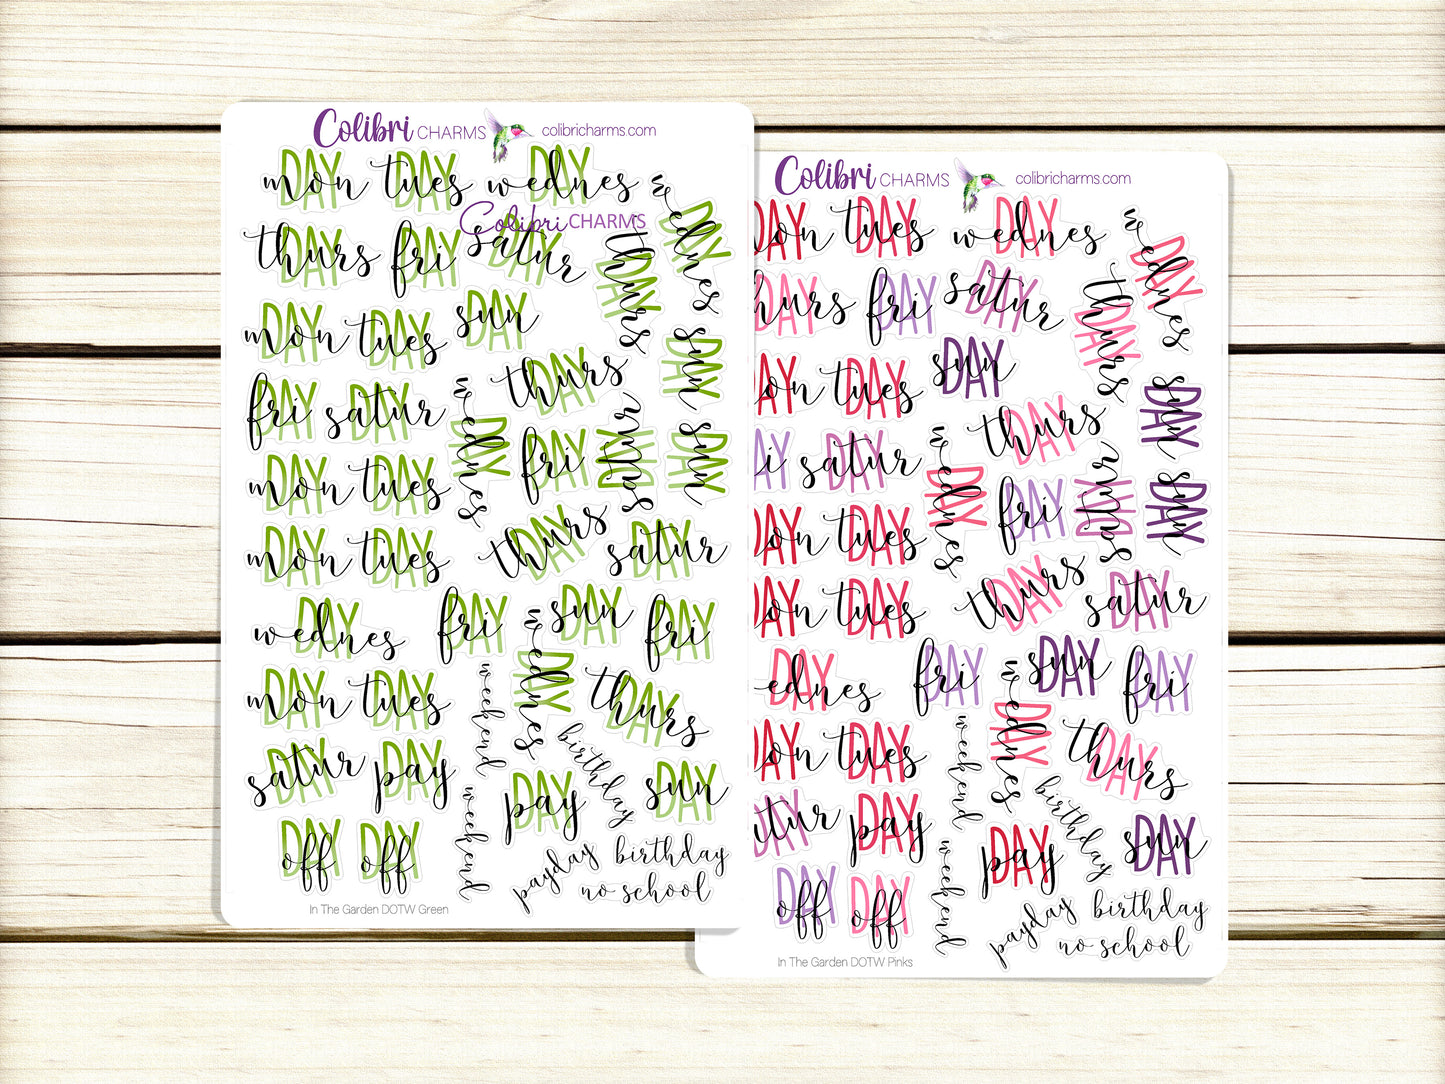 Colibri CHARMS colibricharms.com
monDAY tuesDAY wednesDAY
wednesDAY
Colibri CHARMS
thursDAY friDAY saturDAY
thursDAY
monDAY tuesDAY sunDAY
sunDAY
friDAY saturDAY wednesDAY thursDAY
monDAY tuesDAY friDAY saturDAY sunDAY
monDAY tuesDAY thursDAY saturDAY
wednesDAY friDAY sunDAY friDAY
wednesDAY
monDAY tuesDAY weekend thursDAY
saturDAY payDAY birthday
weekend payDAY sunDAY
offDAY offDAY payday birthday
no school
In The Garden DOTW Green
Colibri CHARMS colibricharms.com
onDAY tuesDAY wednesDAY
wednesDAY
hursDAY friDAY saturDAY
thursDAY
onDAY tuesDAY sunDAY
sunDAY
iDAY saturDAY wednesDAY thursDAY
onDAY tuesDAY friDAY saturDAY sunDAY
onDAY tuesDAY thursDAY saturDAY
ednesDAY friDAY sunDAY friDAY
wednesDAY
onDAY tuesDAY weekend thursDAY
turDAY payDAY birthday
weekend payDAY sunDAY
offDAY offDAY payday birthday
no school
In The Garden DOTW Pinks